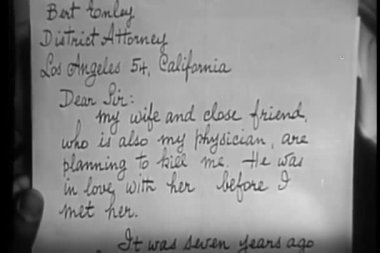 Bert Emley
District Attorney
Los Angeles 54, California
Dear Sir:
my wife and close friend,
who is also my physician, are
planning to kill me. He was
in love with her before I
met her.
It was seven years ago